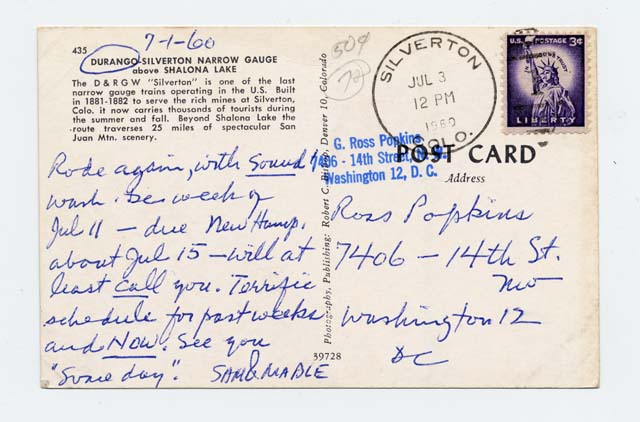 7-1-60
50¢
435
DURANGO-SILVERTON NARROW GAUGE
above SHALONA LAKE
The D & RGW "Silverton" is one of the last
narrow gauge trains operating in the U.S. Built
in 1881-1882 to serve the rich mines at Silverton,
Colo. it now carries thousands of tourists during
the summer and fall. Beyond Shalona Lake the
route traverses 25 miles of spectacular San
Juan Mtn. scenery.
Rode again, with sound
wash. DC week of
Jul 11 – due New Hamp.
about Jul 15 – will at
least call you. Terrific
schedule for past weeks
and NOW. See you
"Some day". SAM & MABLE
Photography, Publishing: Robert C. Denver 10, Colorado
39728
SILVERTON
JUL 3
12 PM
1960
COLO.
U.S. POSTAGE 3¢
IN GOD WE TRUST
LIBERTY
G. Ross Popkins
7406 - 14th Street,
Washington 12, D. C.
POST CARD
Address
Ross Popkins
7406 – 14th St.
NW
Washington 12
DC